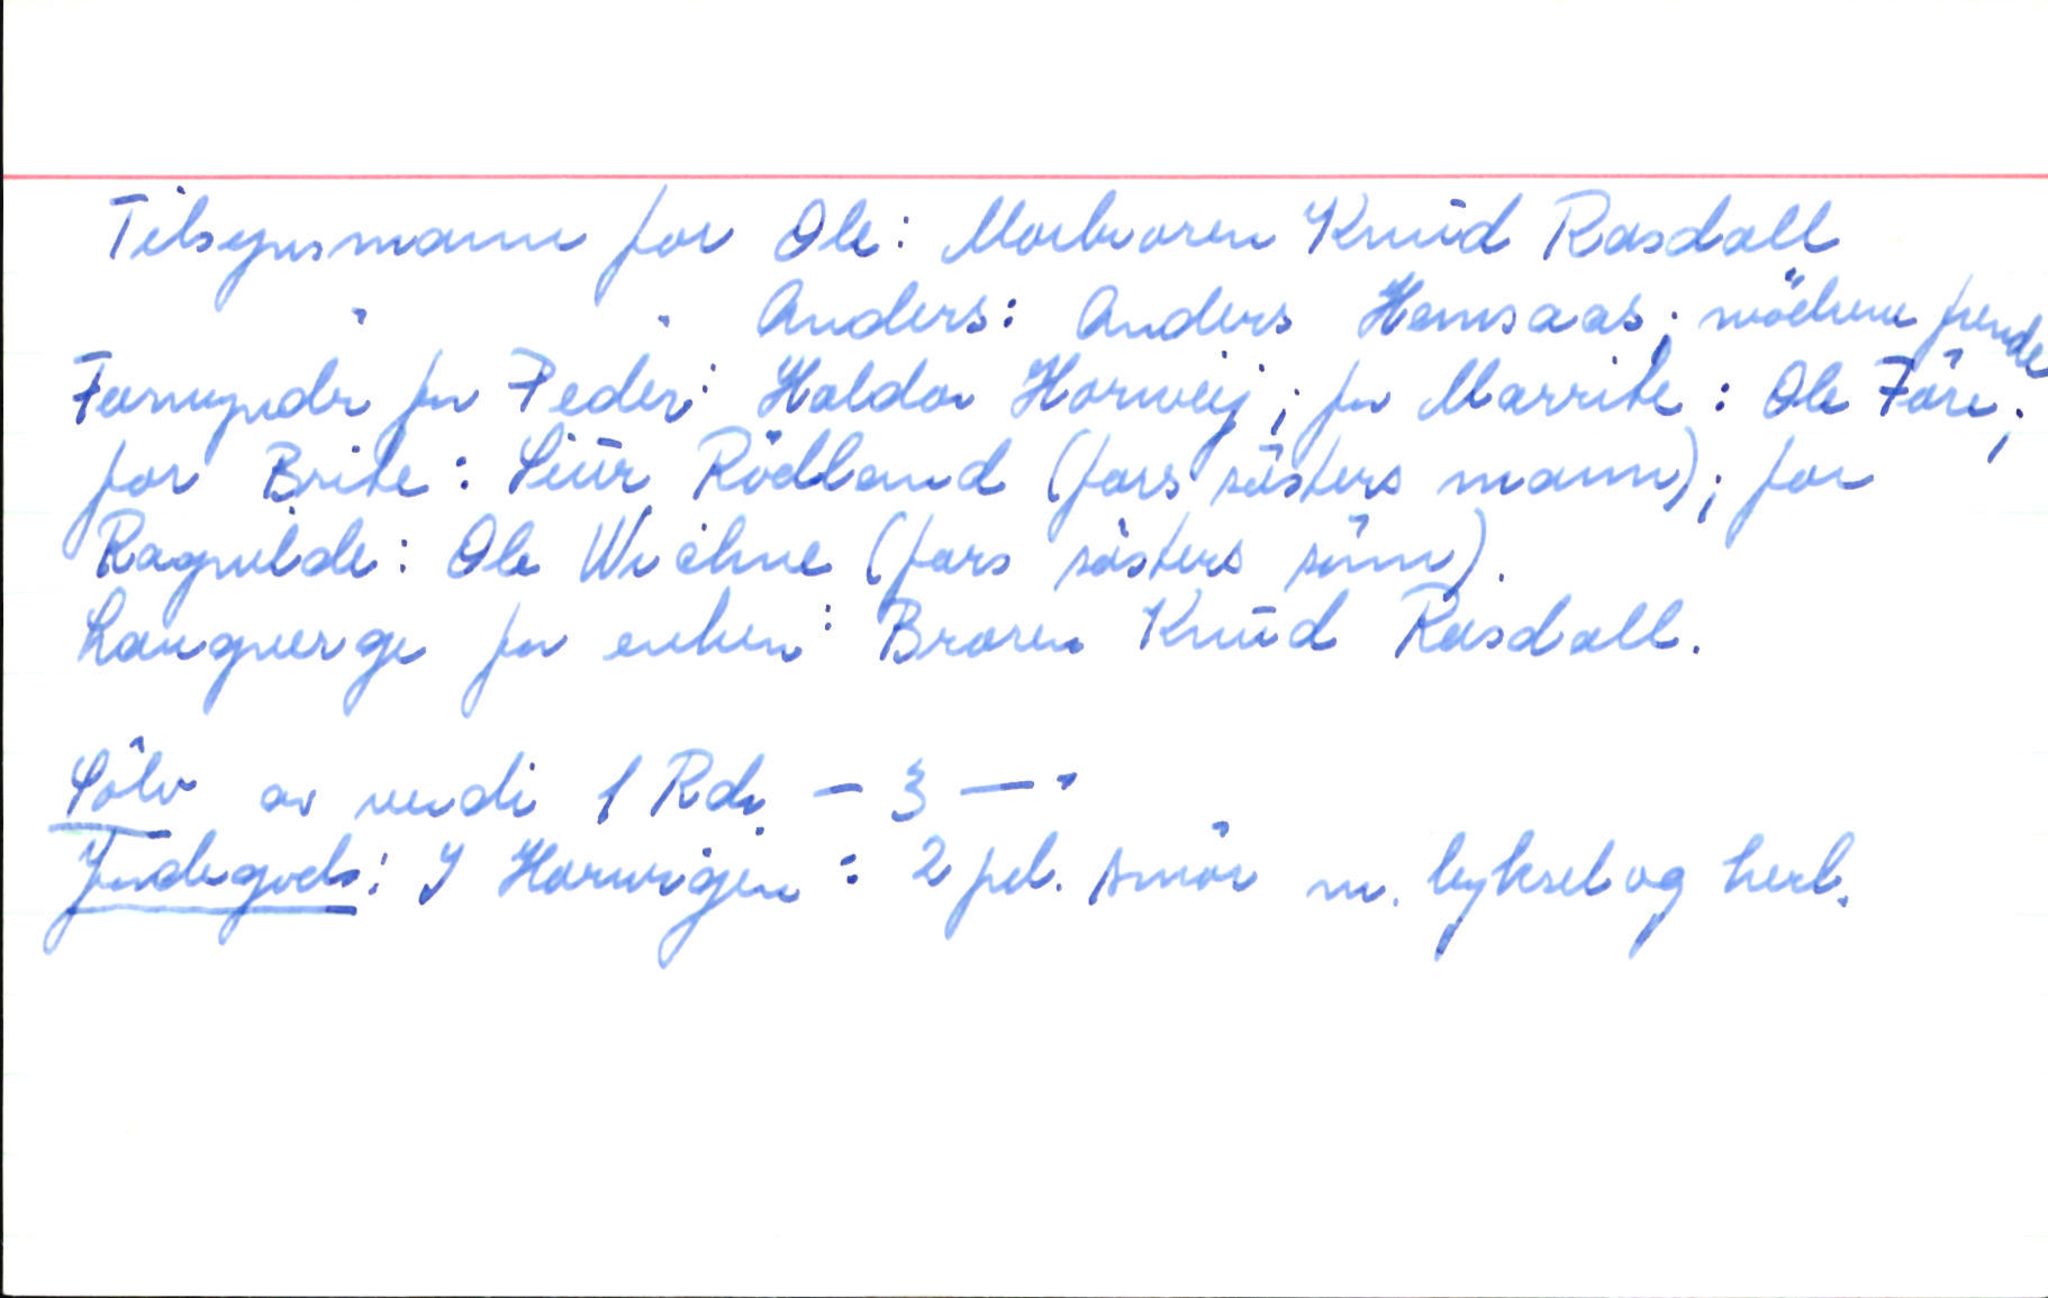 Tilsynsmann for Ole: Morbroren Knud Rasdall
" " Anders: Anders Hemsaas; mödrene frende
Formynder for Peder: Haldor Horweij; for Marrite: Ole Före;
for Brite: Siur Rödland (fars sösters mann); for
Ragnilde: Ole Wichne (fars sösters sönn).
Laugverge for enken: Broren Knud Rasdall.
Sölv av verdi 1 Rdr. – 3 — "
Jordegods: I Horwigen: 2 pd. smör m. byksel og herl.